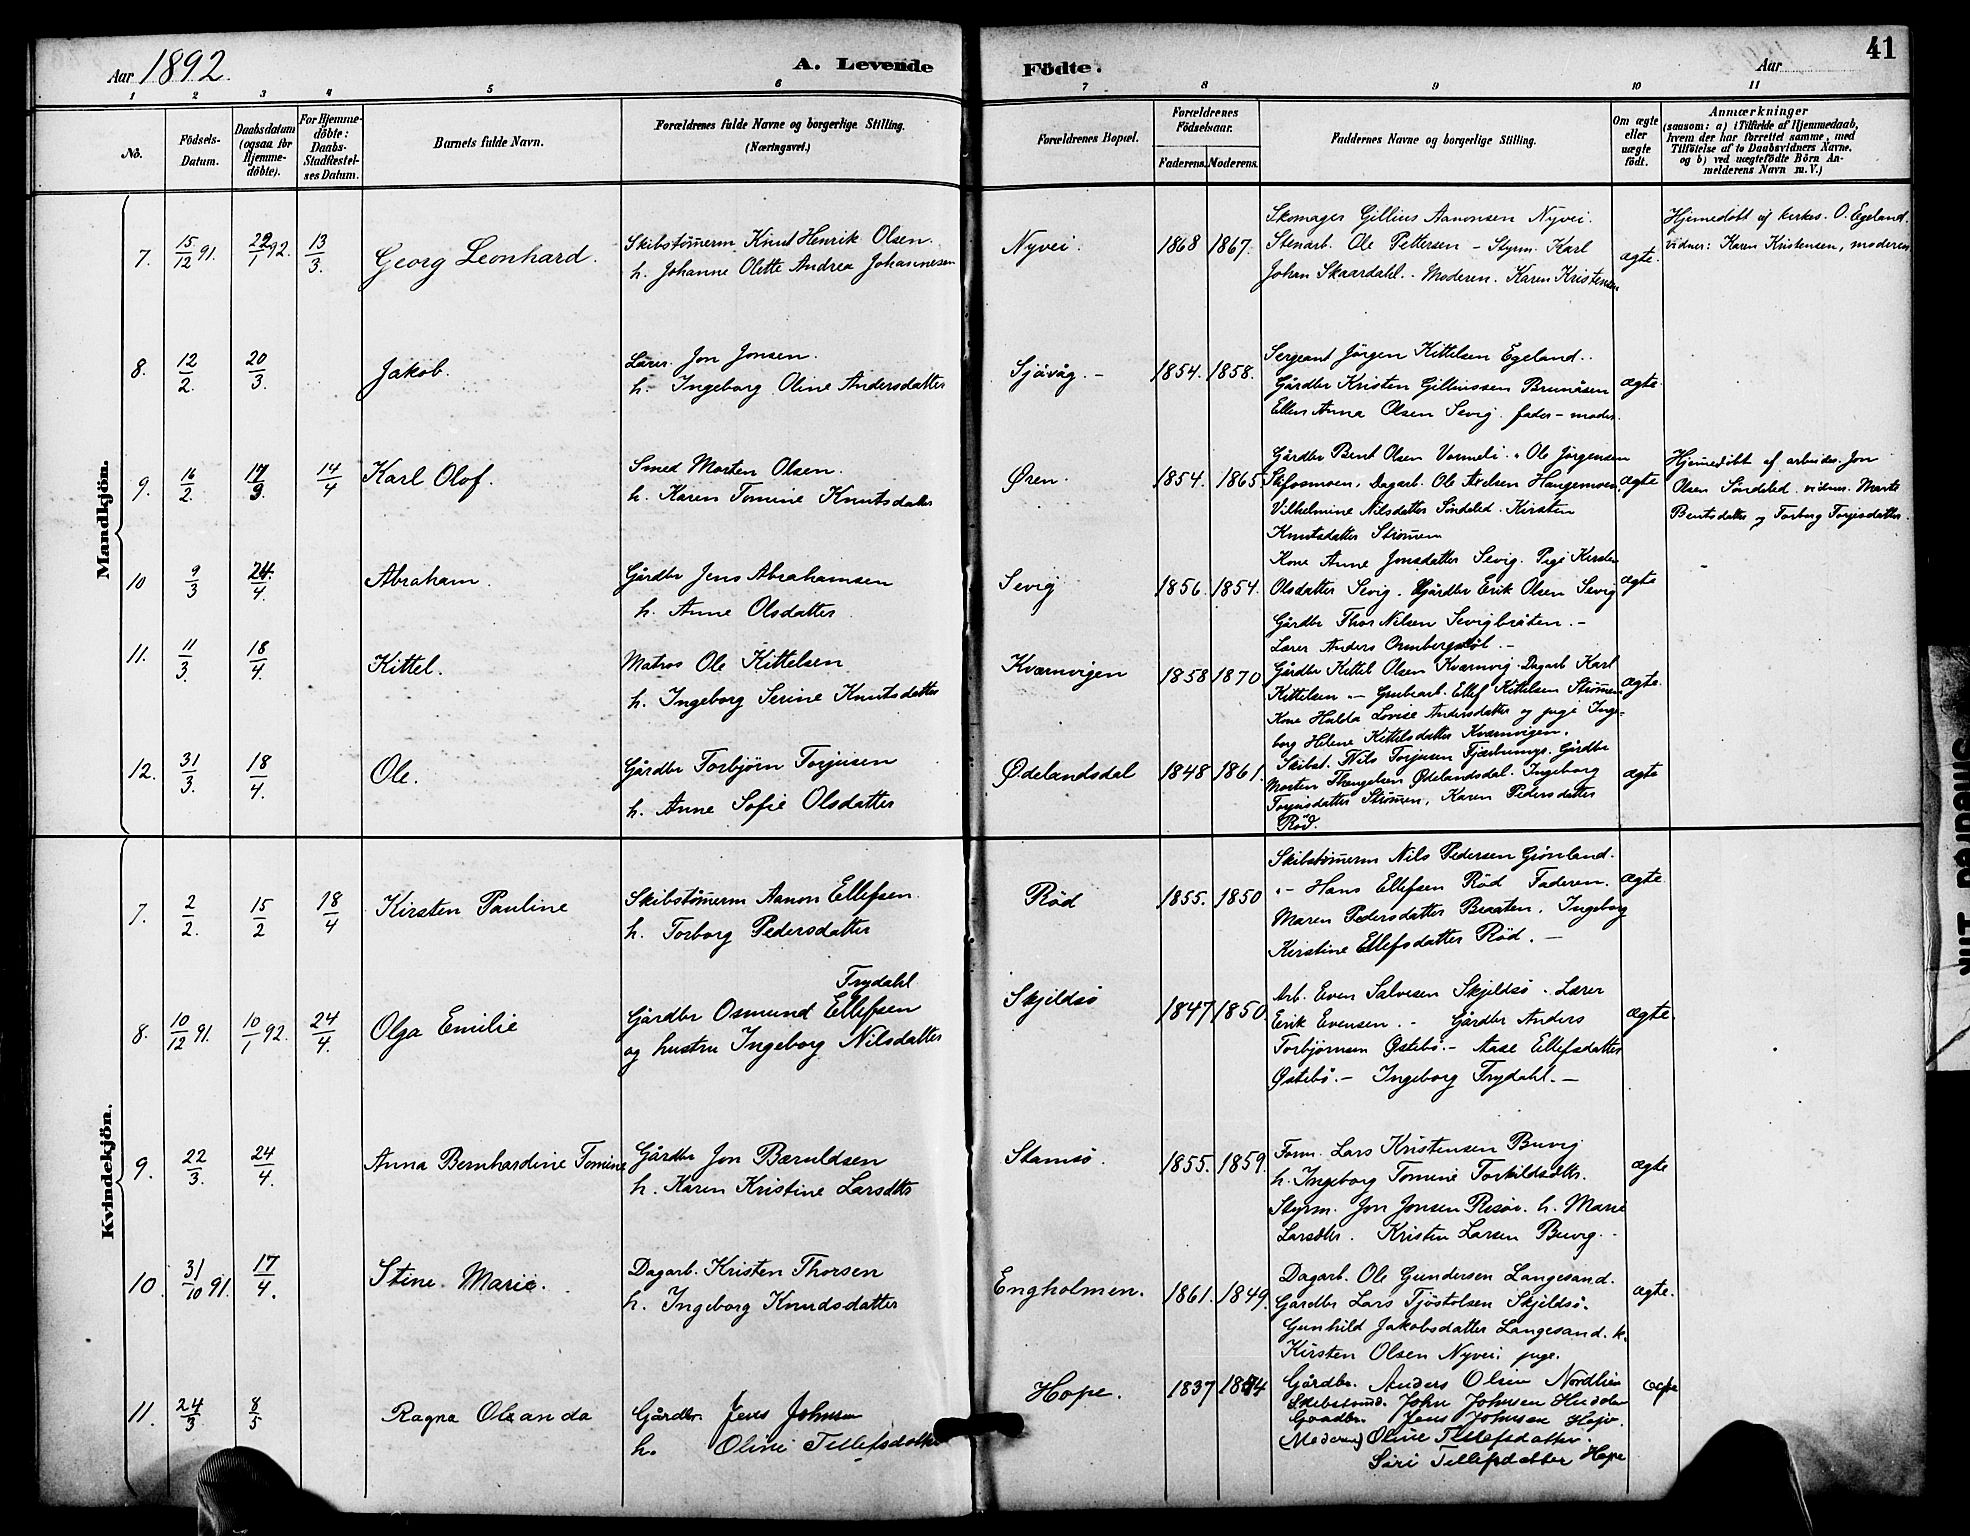 Aar 1892.
A. Levende Födte.
Aar
41
1 2 3 4 5 6 7 8 9 10 11
No.
Födsels-Datum.
Daabsdatum (ogsaa for Hjemme-döbte).
For Hjemme-döbte: Daabs-Stadfæstel-ses Datum.
Barnets fulde Navn.
Forældrenes fulde Navne og borgerlige Stilling. (Næringsvei.)
Forældrenes Bopæl.
Forældrenes Födselsaar.
Faderens. Moderens.
Faddernes Navne og borgerlige Stilling.
Om ægte eller uægte födt.
Anmærkninger
(saasom: a) i Tilfælde af Hjemmedaab,
hvem der har forrettet samme, med
Tilföielse af to Daabsvidners Navne,
og b) ved uægtefödte Börn An-
melderens Navn m. V.)
Mandkjön.
7. 15/12 91. 22/1 92. 13/3. Georg Leonhard.
Skibstömerm Knut Henrik Olsen.
h. Johanne Olette Andrea Johannesen
Nyvei. 1868 1867.
Skomager Gillius Aanonsen Nyvei.
Stenarb. Ole Pettersen – Styrm. Karl
Johan Skaardahl. – Moderen. Karen Kristensen
ægte.
Hjemedöbt af kirkes. O. Egeland.
Vidner: Karen Kristensen, moderen
8. 12/2. 20/3. Jakob.
Lærer Jon Jonsen.
h. Ingeborg Oline Andersdatter
Sjåvåg. – 1854. 1858.
Sergeant Jörgen Kittelsen Egeland.
Gårdbr Kristen Gilliussen Brunåsen
Ellen Anna Olsen Sevig. fader – moder.
ægte.
9. 16/2. 17/3. 14/4 Karl Olof.
Smed Morten Olsen.
h. Karen Tomine Knutsdatter
Øren. 1854. 1865
Gårdbr Bent Olsen Vormeli. " Ole Jörgensen
Dagarb. Ole
Vilhelmine Nilsdatter Söndeled. Kirsten
Knutsdatter Strömen
ægte
Hjemedöbt af arbeider Jon
Olsen Söndeled. vidner. Marte
Bentsdatter og Torborg Torjusdatter.
10 9/3 24/4. Abraham.
Gårdbr Jens Abrahamsen
h. Anne Olsdatter.
Sevig 1856. 1854.
Kone Anne Jonsdatter Sevig. Pige Kirsten
Olsdatter Sevig. Gårdbr Erik Olsen Sevig
Gårdbr Thor Nilsen Sevigbråten. –
Lærer Anders –
ægte
11. 11/3. 18/4. Kittel.
Matros Ole Kittelsen
h. Ingeborg Serine Knutsdatter
Kvarnvigen 1858 1870
Gårdbr Kittel Olsen Kvarnvig. Dagarb Karl
Kittelsen " – Grubearb. Ellef Kittelsen Strömen
Kone Hulda Lovise Andersdatter og pige Inge-
borg Helene Kittelsdatter Kvarnvigen.
ægte.
12. 31/3. 18/4. Ole.
Gårdbr Torbjörn Torjusen
h. Anne Sofie Olsdatter
Ødelandsdal 1848 1861.
Skibst. Nils Torjusen Gårdbr
Morten Ødelandsdal. Ingeborg
Torjusdatter Strömen, Karen Pedersdatter
Röd.
ægte
Kvindekjön.
7. 2/2. 15/2 18/4 Kirsten Pauline
Skibstömerm Aanon Ellefsen.
h. Torborg Pedersdatter
Röd 1855. 1850
Skibstömerm Nils Pedersen Grönland.
" – Hans Ellefsen Röd Faderen.
Maren Pedersdatter Braaten. Ingeborg
Kirstine Ellefsdatter Röd. –
ægte.
8. 10/12 91. 10/1 92. 24/4. Olga Emilie
Frydahl
Gårdbr Osmund Ellefsen
og hustru Ingeborg Nilsdatter
Skjeldsö 1847 1850.
Arb. Even Salvesen Skjeldsö. Lærer
Erik Evensen. – Gårdbr Anders
Torbjörnsen Östebö. – Aase Ellefsdatter
Östebö. – Ingeborg Frydahl. –
ægte.
9. 22/3. 24/4. Anna Bernhardine Tomine
Gårdbr Jon Baruldsen
h. Karen Kristine Larsdtr
Stamsö. 1855. 1859.
Töm. Lars Kristensen Buvig
h. Ingeborg Tomine Torkildsdtr.
Styrm. Jon Jonsen Risör. h. Marie
Larsdtr. Kristen Larsen Buvig.
ægte
10. 31/10 91. 17/4. Stine Marie.
Dagarb. Kristen Thorsen
h. Ingeborg Knudsdatter
Engholmen. 1861. 1849.
Dagarb. Ole Gundersen Langesand.
Gårdbr Lars Tjöstolsen Skjeldsö.
Gunhild Jakobsdatter Langesand. k.
Kirsten Olsen Nyvei. pige.
ægte.
11. 24/3 8/5 Ragna Oleanda
Gårdbr. Jens Johnsen
h. Oline Tellefsdatter
Hope. 1837
Gårdbr. Anders Olsen Nordlien
John Johnsen
Gaardbr. Jens Johnsen Hope.
(Moderen) Oline Tellefsdatter.
Siri Tellefsdatter Hope
ægte